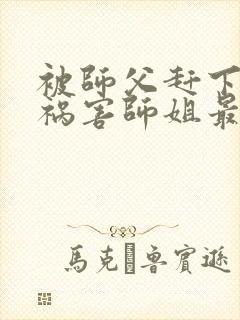 被師父赶下
祸害師姐最
馬克·魯賓遜